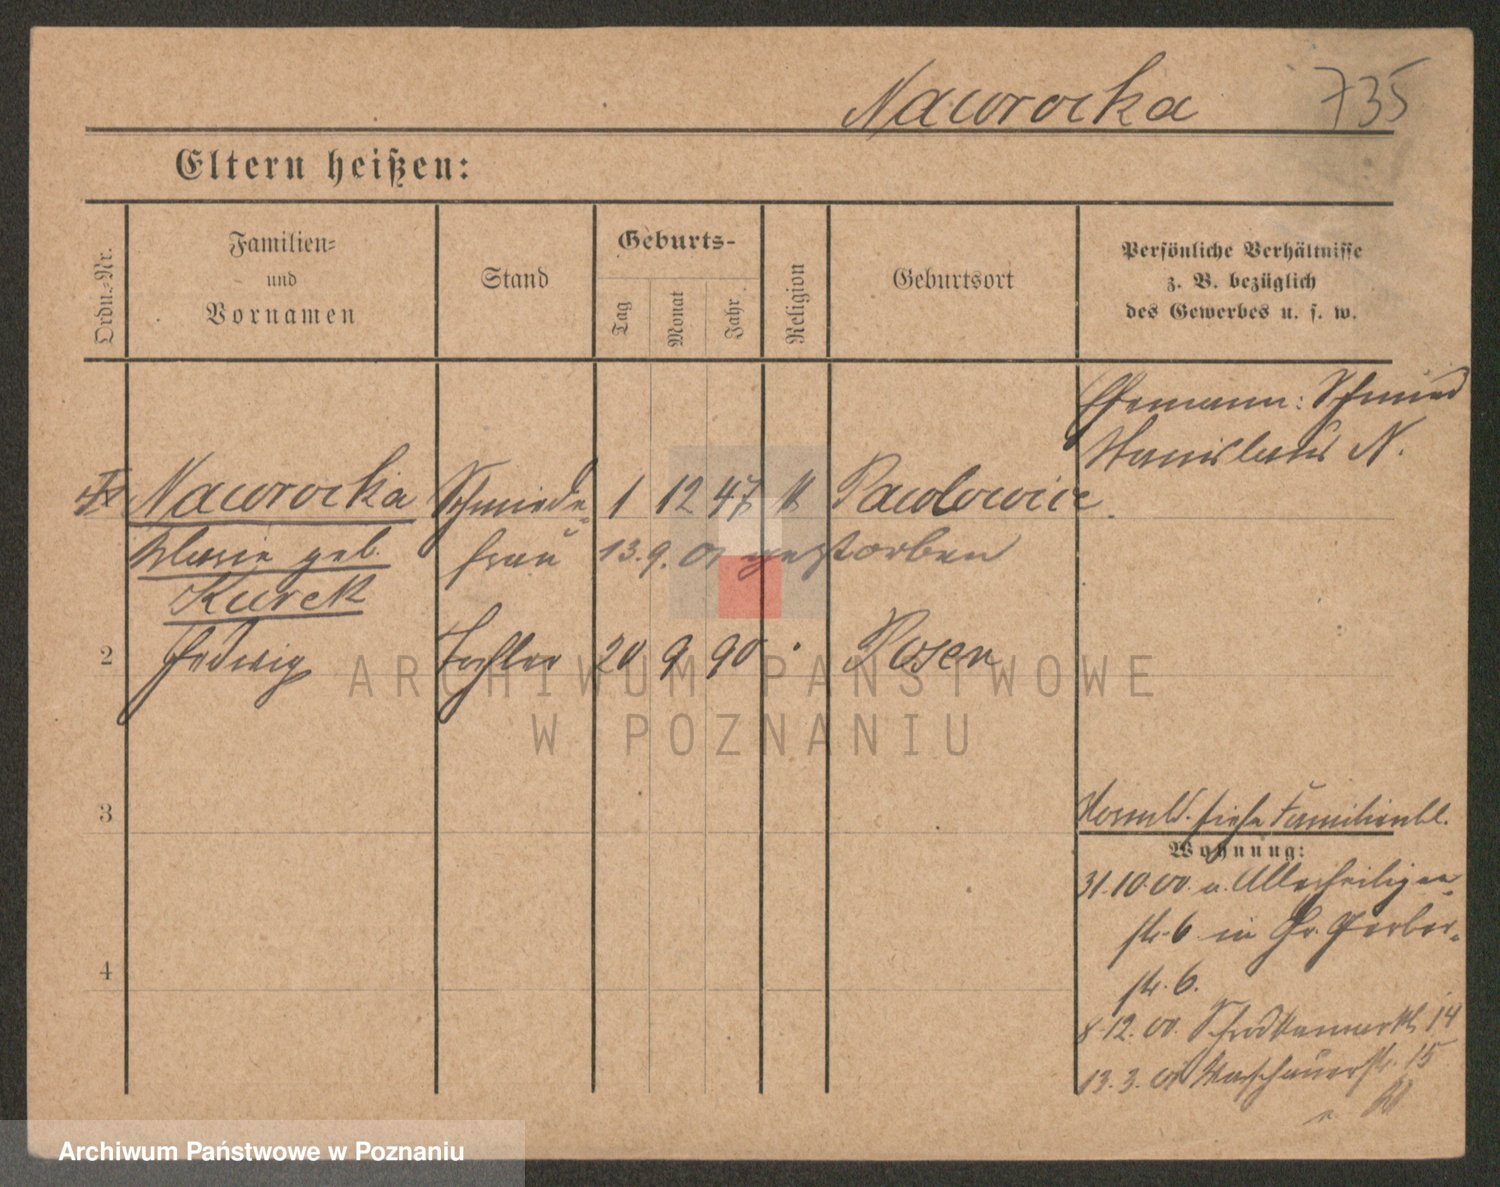 Nawrocka 735
Eltern heißen:
Ordn.-Nr.
Familien-
und
Vornamen
Stand
Geburts-
Tag
Monat
Jahr
Religion
Geburtsort
Persönliche Verhältnisse
z. B. bezüglich
des Gewerbes u. s. w.
Ehemann: Schmied
Stanislaus N.
Nawrocka Schmiede- 1 12 47 k Pawlowice
Marie geb. frau 13.9.01 gestorben
Kurek
2 Hedwig Tochter 20 9 90 Posen
3
Vorm. siehe Familienbl.
Wohnung:
31.10.00. a. Allerheiligen-
str. 6 in Gr. Gerber-
str. 6.
4
8.12.00. Schrodkamarkt 14
13.3.01 Warschauerstr. 15
ARCHIWUM PAŃSTWOWE
W POZNANIU
Archiwum Państwowe w Poznaniu